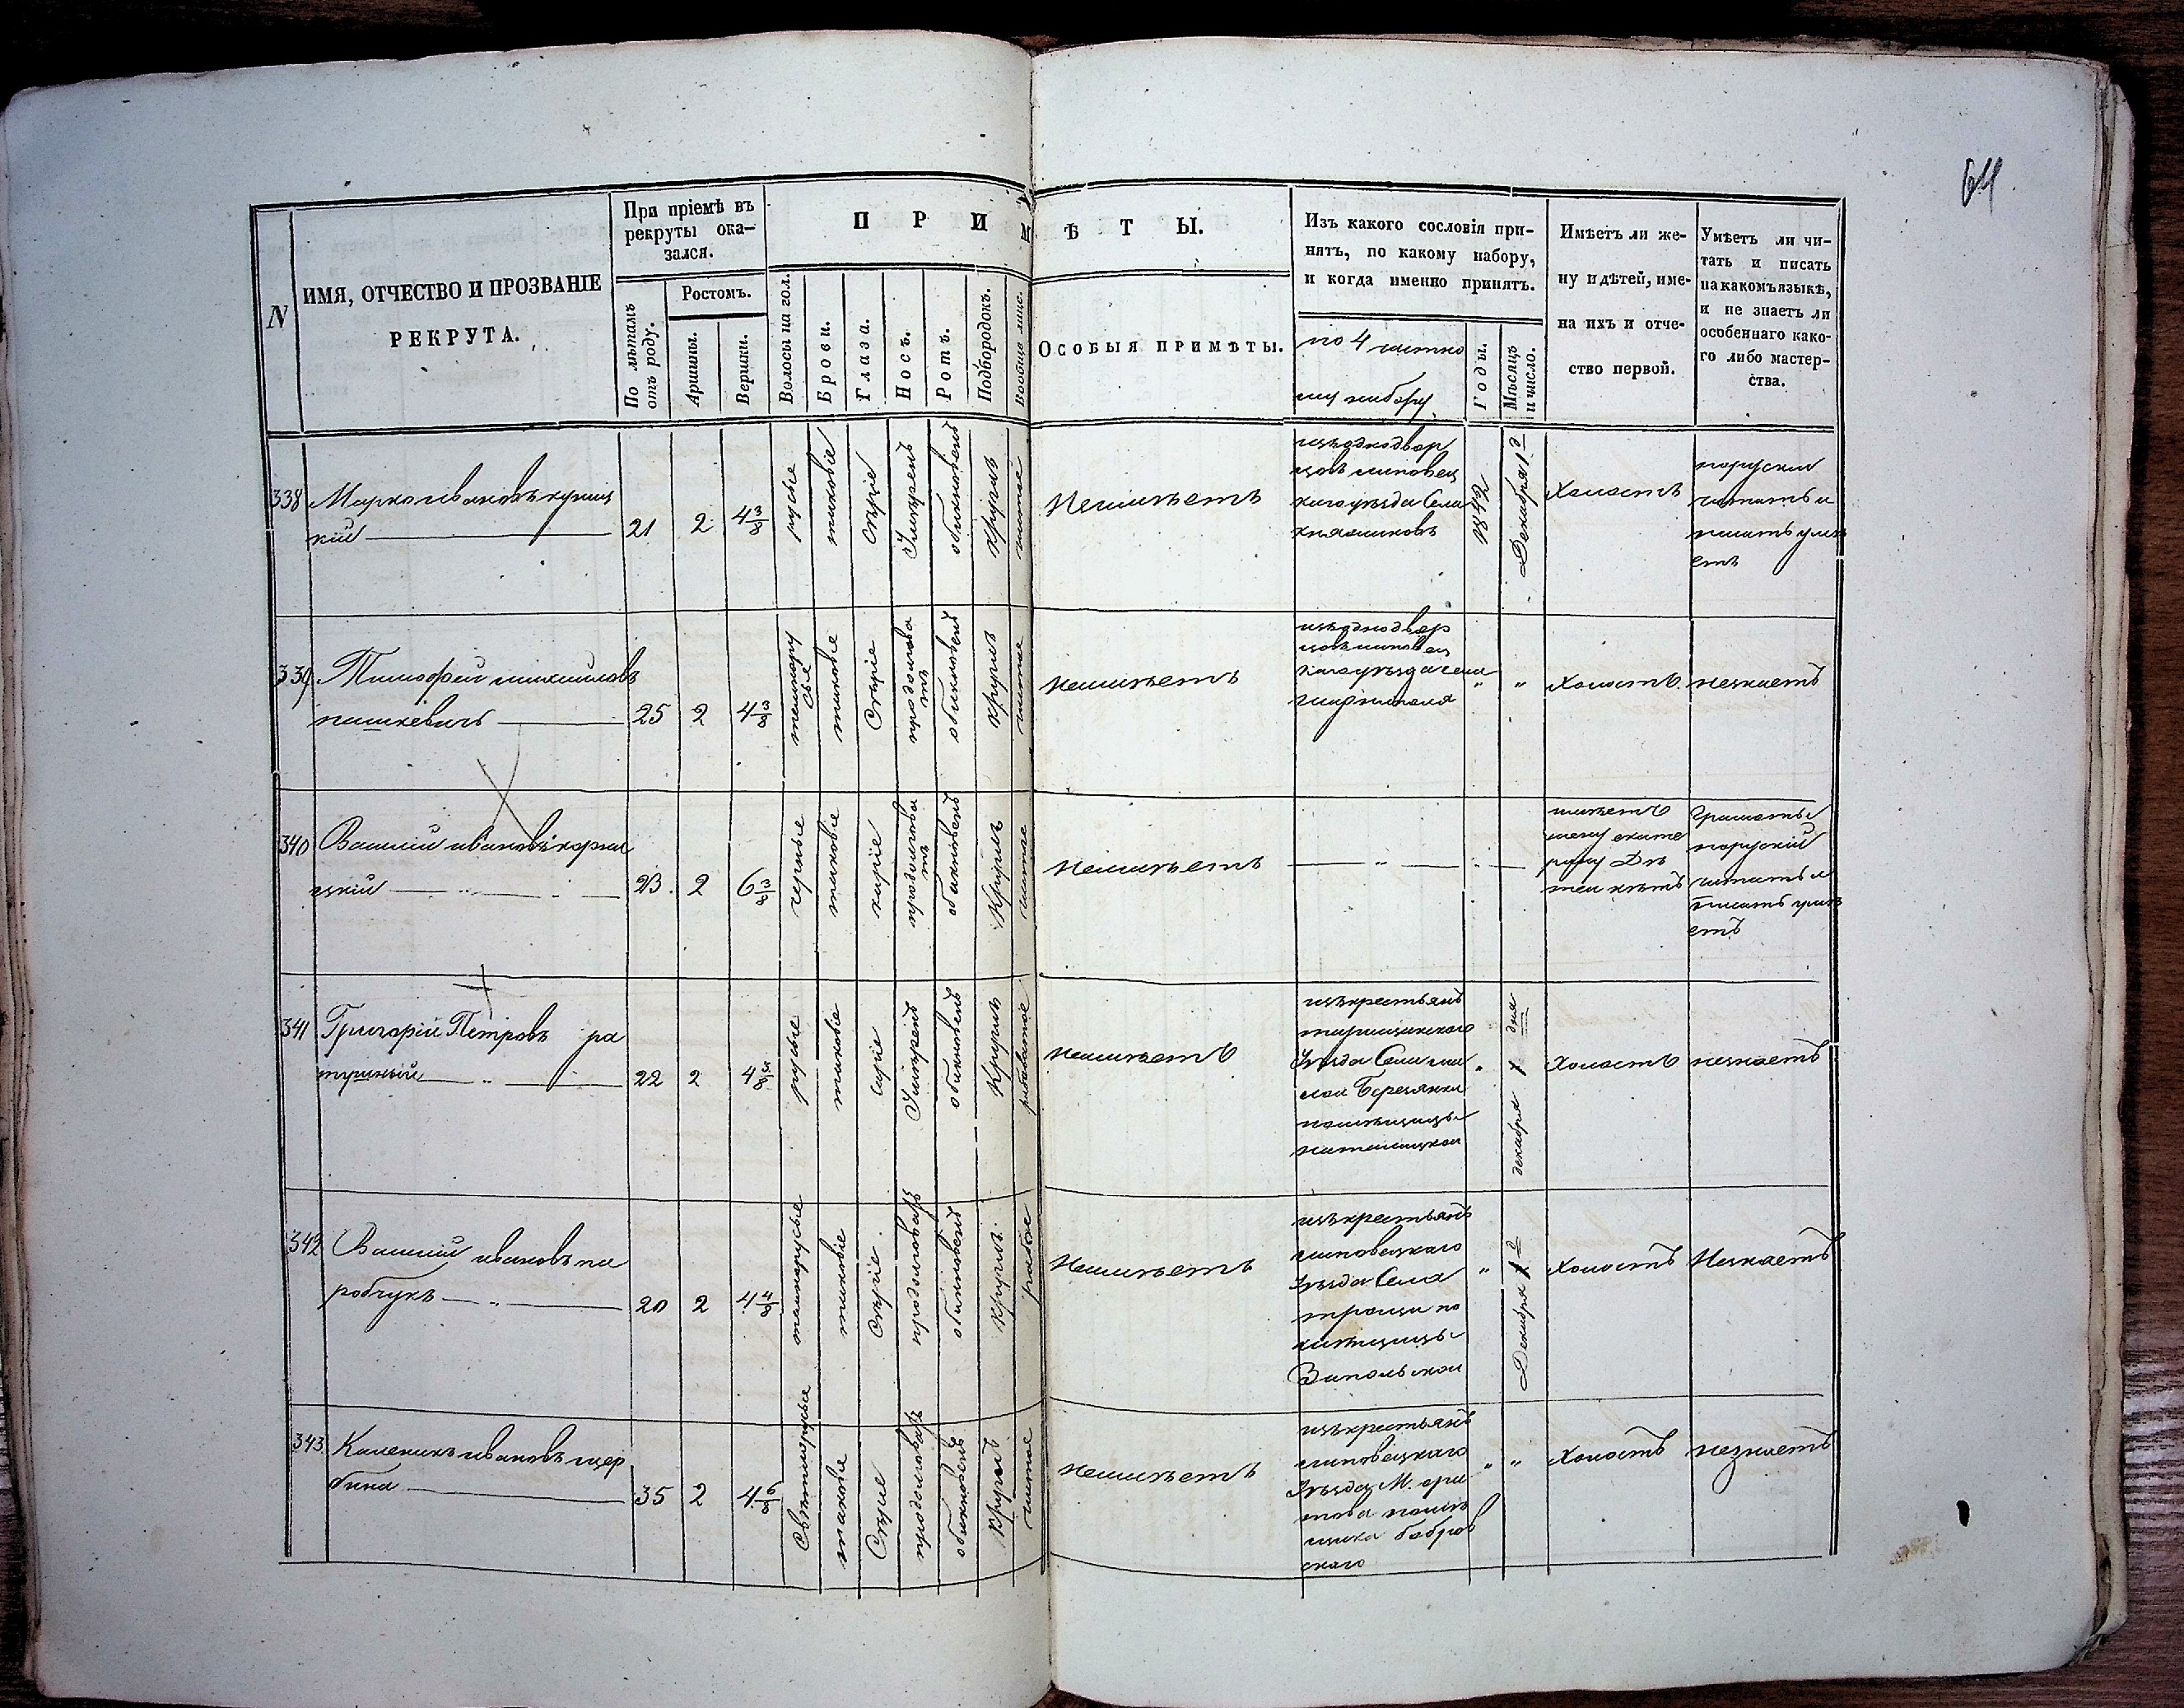 64
N
ИМЯ, ОТЧЕСТВО И ПРОЗВАНІЕ
РЕКРУТА.
При пріемѣ въ
рекруты ока-
зался.
По лѣтамъ
отъ роду.
Ростомъ.
Аршины.
Вершки.
П Р И М Ѣ Т Ы.
Волосы на гол.
Брови.
Глаза.
Носъ.
Ротъ.
Подбородокъ.
Вообще лице.
ОСОБЫЯ ПРИМѢТЫ.
Изъ какого сословія при-
нятъ, по какому набору,
и когда именно принятъ.
по 4 частно
му набору
Годы.
Мѣсяцъ
и число.
Имѣетъ ли же-
ну и дѣтей, име-
на ихъ и отче-
ство первой.
Умѣетъ ли чи-
тать и писать
на какомъ языкѣ,
и не знаетъ ли
особеннаго како-
го либо мастер-
ства.
338
Марко ивановъ
кій
21
2
4 3/8
русые
таковіе
Серіе
Умерень
обикновень
круглъ
чистое
Неимѣетъ
изъ однодвор
цовъ липовец
каго уѣзда Села
1842
Декабря 1 д
Холостъ
поруски
читать и
писать умѣ
етъ
339
Тимофей михайловъ
пашкевичь
25
2
4 3/8
темнору
сые
таковіе
Серіе
продолгова
тъ
обикновень
круглъ
чистое
неимѣетъ
изъ однодвор
цовъ липовец
каго уѣзда села
"
"
Холостъ.
незнаетъ
340
Василій ивановъ
цкій
23
2
6 3/8
черные
таковіе
каріе
продолгова
тъ
обикновень
Круглъ
чистое
неимѣетъ
"
имѣетъ
жену екате
рину Дѣ
теи нѣтъ
Грамоты
поруский
читать и
писать умѣ
етъ
341
Григорій Петровъ ра
тушный
22
2
4 3/8
русые
таковіе
Серіе
Умерень
обикновень
Круглъ
рябоватое
неимѣетъ
изъ крестьянъ
таращанскаго
Уѣзда Села ма
лой Березянки
помѣщицы
"
декабря 1 дня
Холостъ
незнаетъ
342
Василій ивановъ па
робчукъ
20
2
4 4/8
темнорусые
таковіе
Серіе.
продолговатъ
обикновень
круглъ.
рябое
Неимѣетъ
изъ крестьянъ
липовецкаго
Уѣзда Села
трощи по
мѣщицы
Запольской
"
Декабря 1 д
Холостъ
Незнаетъ
343
Каленикъ ивановъ щер
бина
35
2
4 6/8
Свѣтлорусые
таковіе
Серие
продолговатъ
обикновень
Круглъ
чистое
неимѣетъ
изъ крестьянъ
липовецкаго
Уѣзда М. ора
това помѣ
щика бобров
скаго
"
"
Холостъ
незнаетъ